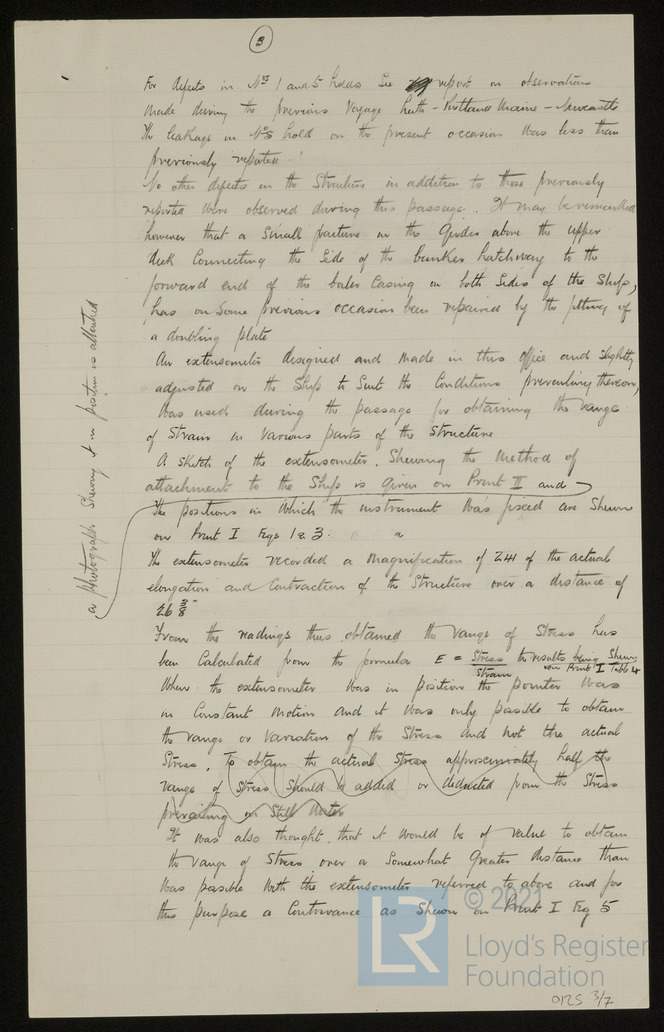 3
For defects in Nos 1 and 5 holds See report on observations
made during the previous Voyage Leith - Portland Maine - Newcastle
The leakage in No 5 hold on the present occasion was less than
previously reported.
No other defects in the Structure in addition to those previously
reported were observed during this passage. It may be remembered
however that a small fracture in the Girder above the upper
deck Connecting the Side of the bunker hatchway to the
forward end of the boiler Casing on both Sides of the Ship,
has on Some previous occasion been repaired by the fitting of
a doubling plate
An extensometer designed and made in this Office and Slightly
adjusted on the Ship to Suit the Conditions prevailing thereon,
was used during the passage for obtaining the range
of Strain in Various parts of the Structure
A Sketch of the extensometer, Shewing the method of
attachment to the Ship is given on Print II and
a photograph shewing it in position is attached
The positions in which the instrument was fixed are Shewn
on Print I Figs 1 & 3.
The extensometer recorded a magnification of 241 of the actual
elongation and Contraction of the Structure over a distance of
26 3/8"
From the readings thus obtained the range of Stress has
been Calculated from the formula E = Stress/Strain the results being Shewn
on Print I Table 4
When the extensometer was in position the pointer was
in Constant motion and it was only possible to obtain
the range or Variation of the Stress and not the actual
Stress. To obtain the actual Stress approximately half the
range of Stress Should be added or deducted from the Stress
prevailing in Still Water
It was also thought that it would be of value to obtain
the range of Stress over a Somewhat Greater distance than
was possible with the extensometer referred to above and for
this purpose a Contrivance as Shewn on Print I Fig 5
© 2021
LR
Lloyd's Register
Foundation
0125 3/7